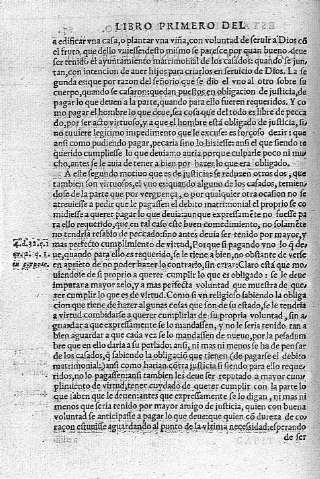 LIBRO PRIMERO DEL
a edificar vna casa, o plantar vna viña, con voluntad de seruir a Dios cō
el fruto, que dello vuiessen desto mismo se paresce por quan bueno deue
ser tenido el ayuntamiento matrimonial de los casados: quando se jun-
tan, con intencion de auer hijos para criarlos en seruicio de Dios. La se
gunda es que por razon del señorio que se dio el vno al otro sobre su
cuerpo, quando se casaron: quedan puestos en obligacion de justicia, de
pagar lo que deuen a la parte, quando para ello fueren requeridos. Y co
mo pagar el hombre lo que deue, sea cosa que del todo es libre de pecca
do, por ser acto virtuoso, y a que el hombre está obligado de justicia, si
no tuuiere legitimo impedimento que le escuse: es forçoso dezir: que
ansi como pudiendo pagar, pecaria sino lo hiziesse: ansi el que siendo re
querido cumpliesse lo que deuia no auria porque culparle poco ni mu
cho, antes se le auia de tener a bien por hazer lo que era obligado.
A este segundo motiuo que es de justicia se reduzen otros dos, que
tambien son virtuosos, el vno es quando alguno de los casados, temien
dose de la parte que por verguença, o por qualquier otra ocasion no se
atreuiesse a pedir que le pagassen el debito matrimonial el proprio se co
midiesse a querer pagar lo que deuia: aunque expressamēte no fuesse pa
ra ello requerido, que en tal caso este buen comedimiento, no solamēte
no tendria resabio de peccado sino antes deuia ser tenido por mayor, y
mas perfecto cumplimiento de virtud, Porque si pagando vno lo q̄ de
ue, quando para ello es requerido, se le tiene a bien, no obstante de verse
en aprieto de no poder hazer lo contrario, sin errar: Claro está que mo
uiendose de si proprio a querer cumplir lo que es obligado: se le deue
imputar a mayor zelo, y a mas perfecta voluntad que muestra de que-
rer cumplir lo que es de virtud. Como si vn religioso sabiendo la obliga
cion que tiene de hazer algunas cosas que son de su estado, se le tendria
a virtud combidarse a querer cumplirlas de su propria voluntad, sin a-
guardar a que expressamente se lo mandassen, y no le seria tenido tan a
bien aguardar a que cada vez se lo mandassen de nueuo, por la pesadum
bre que en ello daria a su perlado: ansi, ni mas ni menos se ha de pensar
de los casados, q̄ sabiendo la obligacion que tienen (de pagarse el debito
matrimonial:) ansi como harian cōtra justicia si siendo para ello reque-
ridos, no lo pagassen: ansi tambien les deue ser reputado a mayor cum-
plimiento de virtud, tener cuydado de querer cumplir con la parte lo
que saben que le deuen: antes que expressamente se lo digan, ni mas ni
menos que seria tenido por mayor amigo de justicia, quien con buena
voluntad se anticipasse a pagar lo que deue: que quien cō dureza de co
raçon estuuiesse aguardando al punto de la vltima necessidad, esperando
de ser